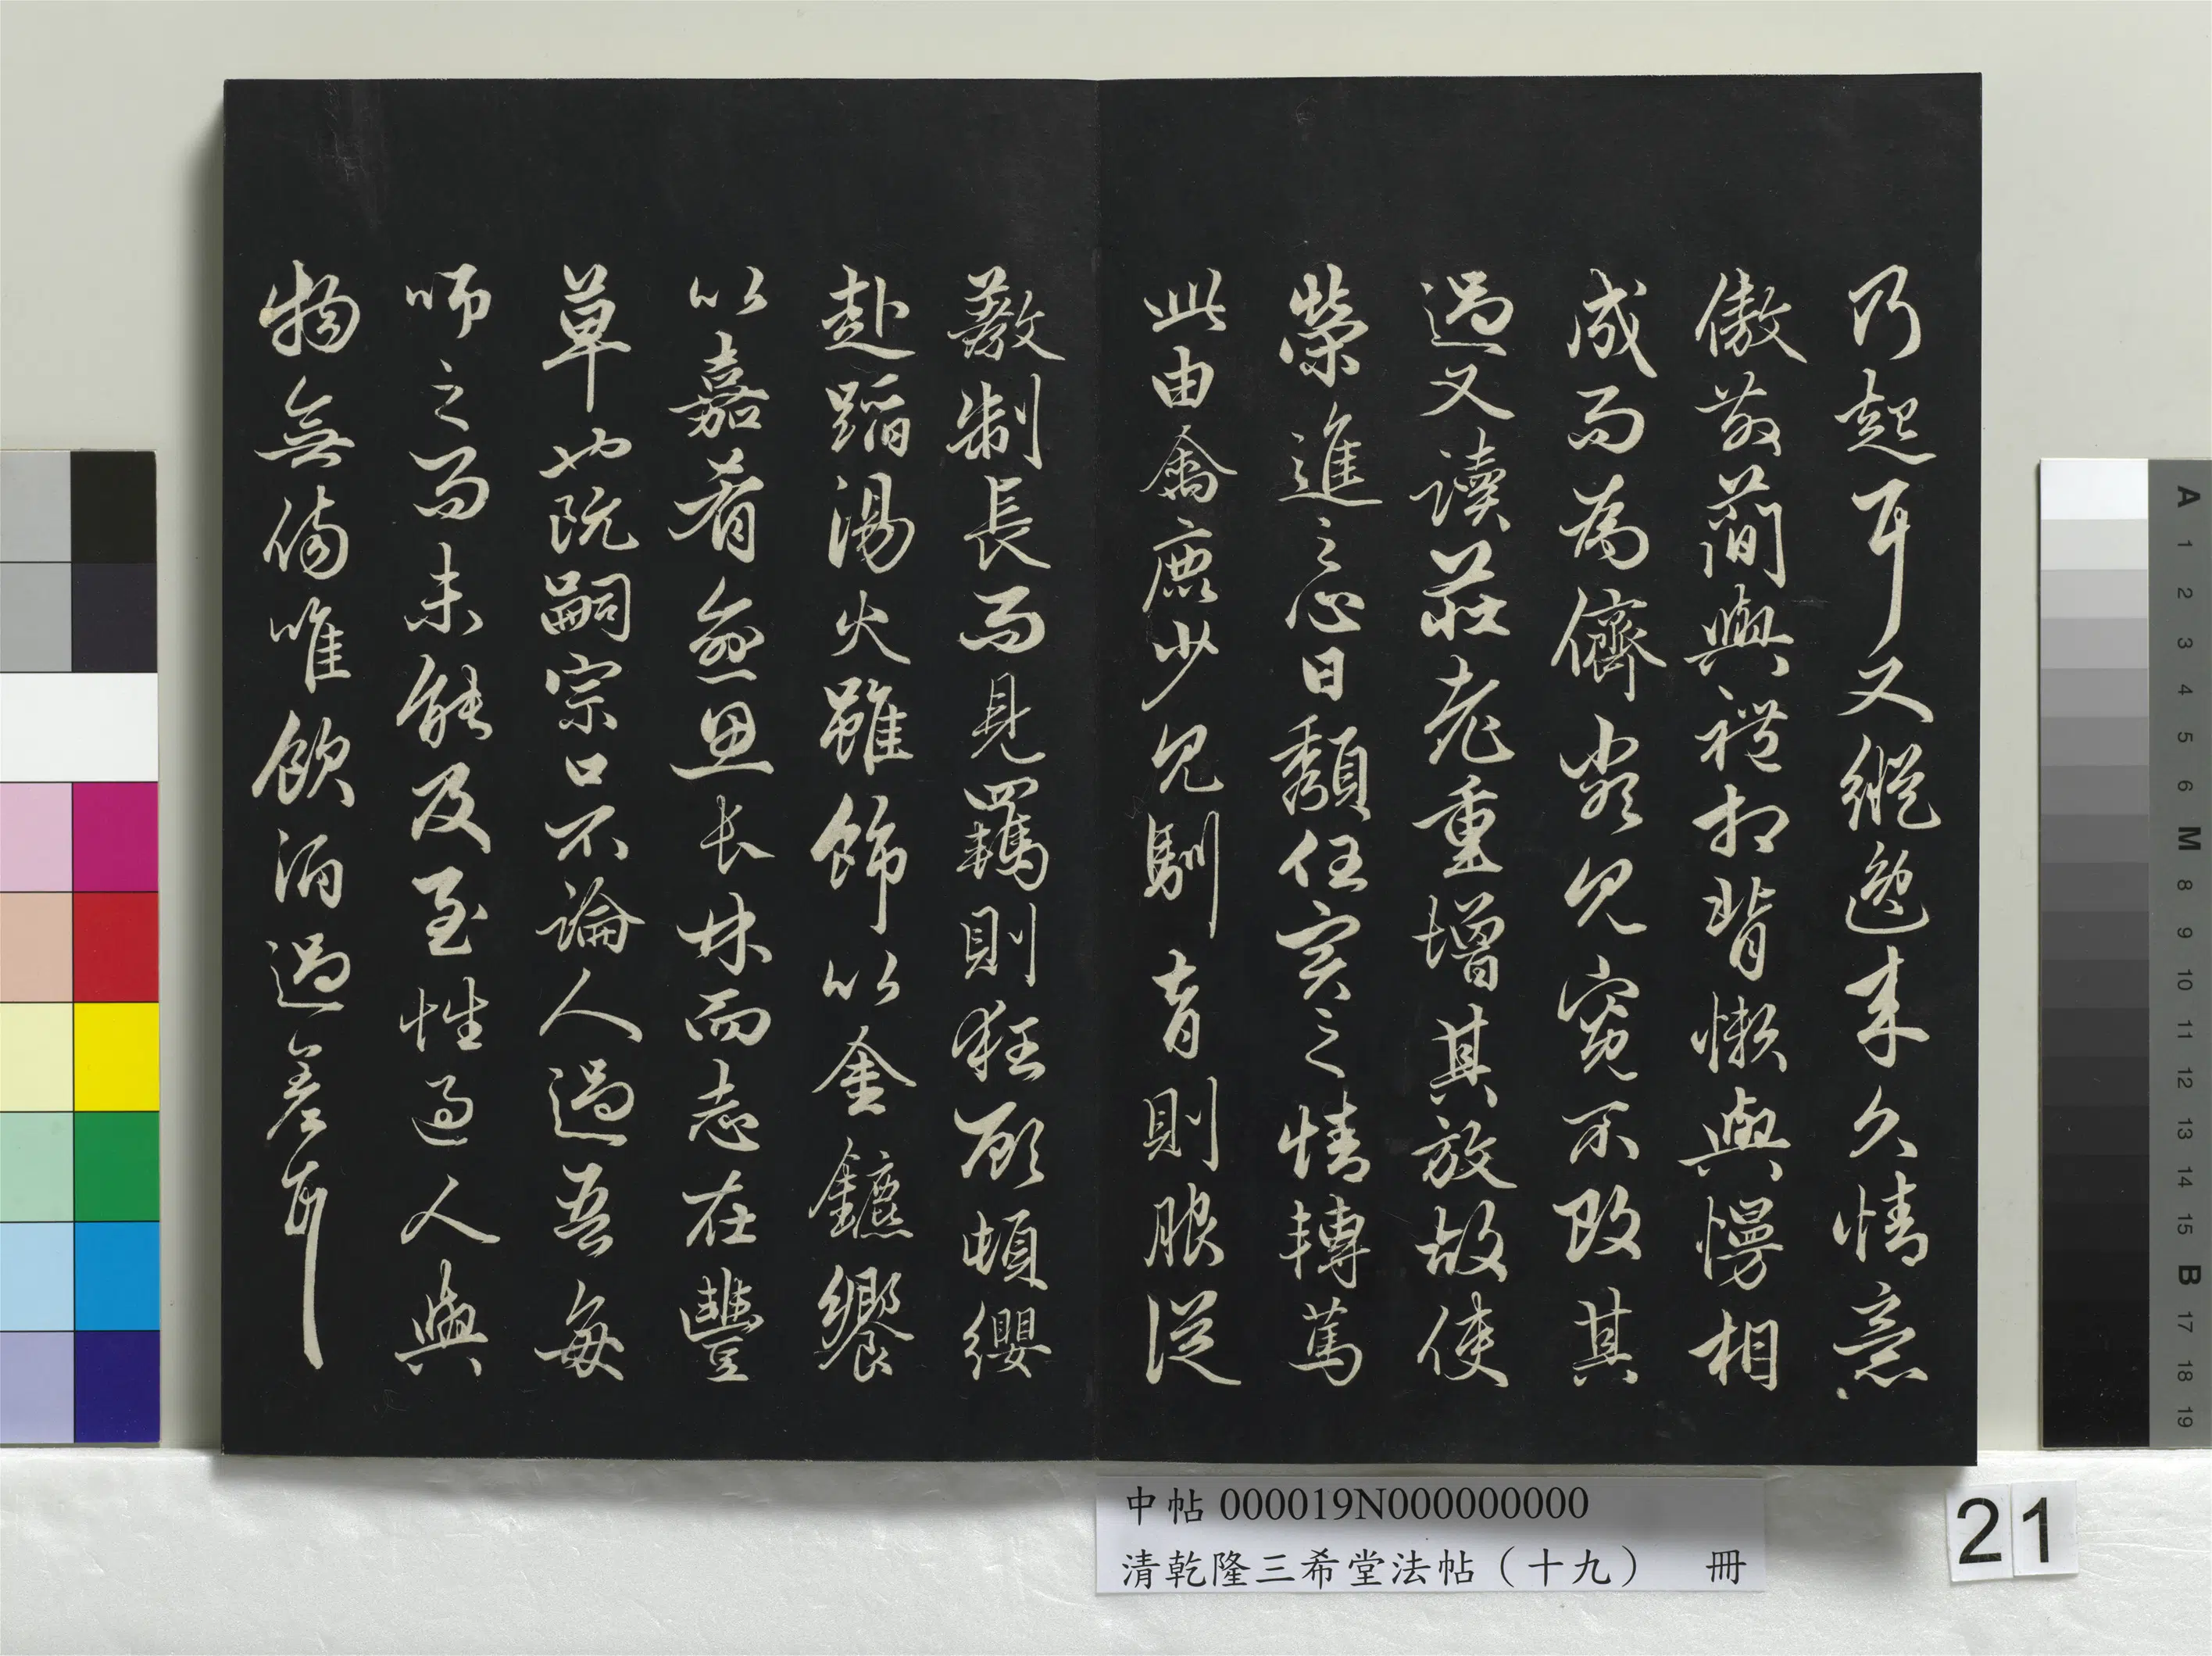 乃起耳又縱逸來久情意
傲散簡與禮相背懶與慢相
成而為儕類見寬不攻其
過又讀莊老重增其放故使
榮進之心日頹任實之情轉篤
此由禽鹿少見馴育則服從
教制長而見羈則狂顧頓纓
赴蹈湯火雖飾以金鑣饗
以嘉肴逾思長林而志在豐
草也阮嗣宗口不論人過吾每
師之而未能及至性過人與
物無傷唯飲酒過差耳
中帖 000019N000000000
清乾隆三希堂法帖（十九） 冊
21
A
1
2
3
4
5
6
M
8
9
10
11
12
13
14
15
B
17
18
19